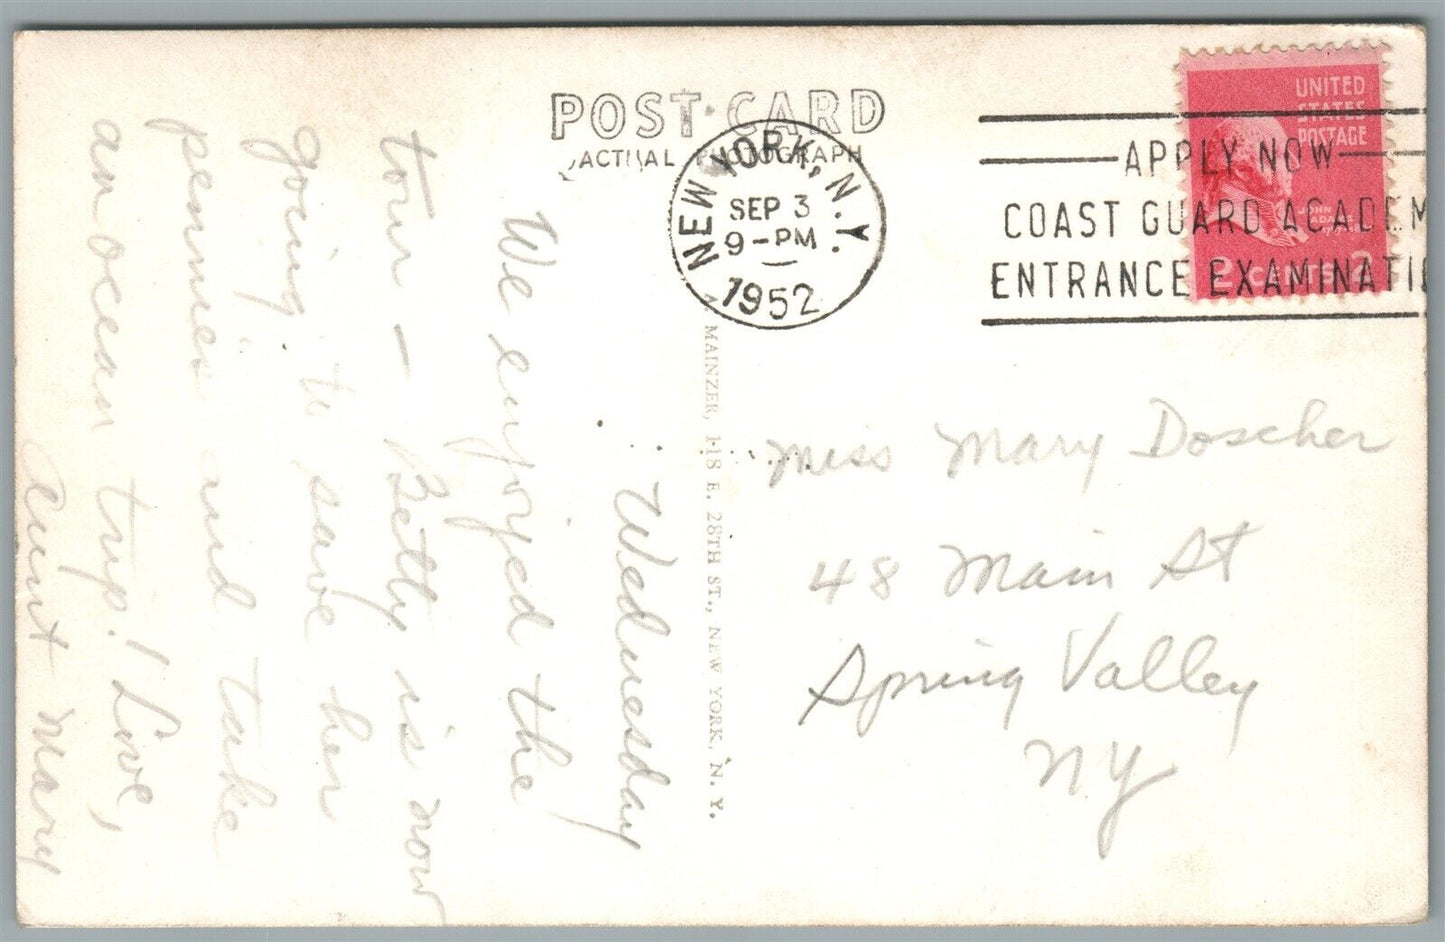 POST CARD
ACTUAL PHOTOGRAPH
NEW YORK, N.Y.
SEP 3
9-PM
1952
APPLY NOW
COAST GUARD ACADEM
ENTRANCE EXAMINATI
UNITED
STATES
POSTAGE
JOHN
ADAMS
2 CENTS 2
MAINZER, 118 E. 28TH ST., NEW YORK, N. Y.
Wednesday
We enjoyed the
tour - Betty is now
going to save her
pennies and take
an ocean trip! Love,
Aunt Mary
Miss Mary Doscher
48 Main St
Spring Valley
NY